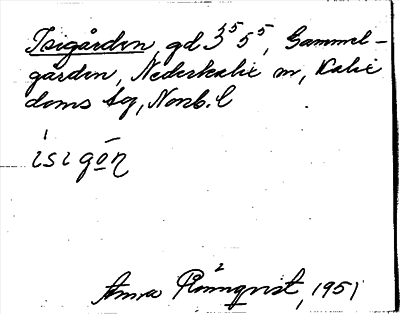 Isigården, gd 3⁵ 5⁵, Gammel-
gården, Nederkalix sn, Kalix
doms tg, Norrb. l
isigōn
Anna Rönnqvist, 1951